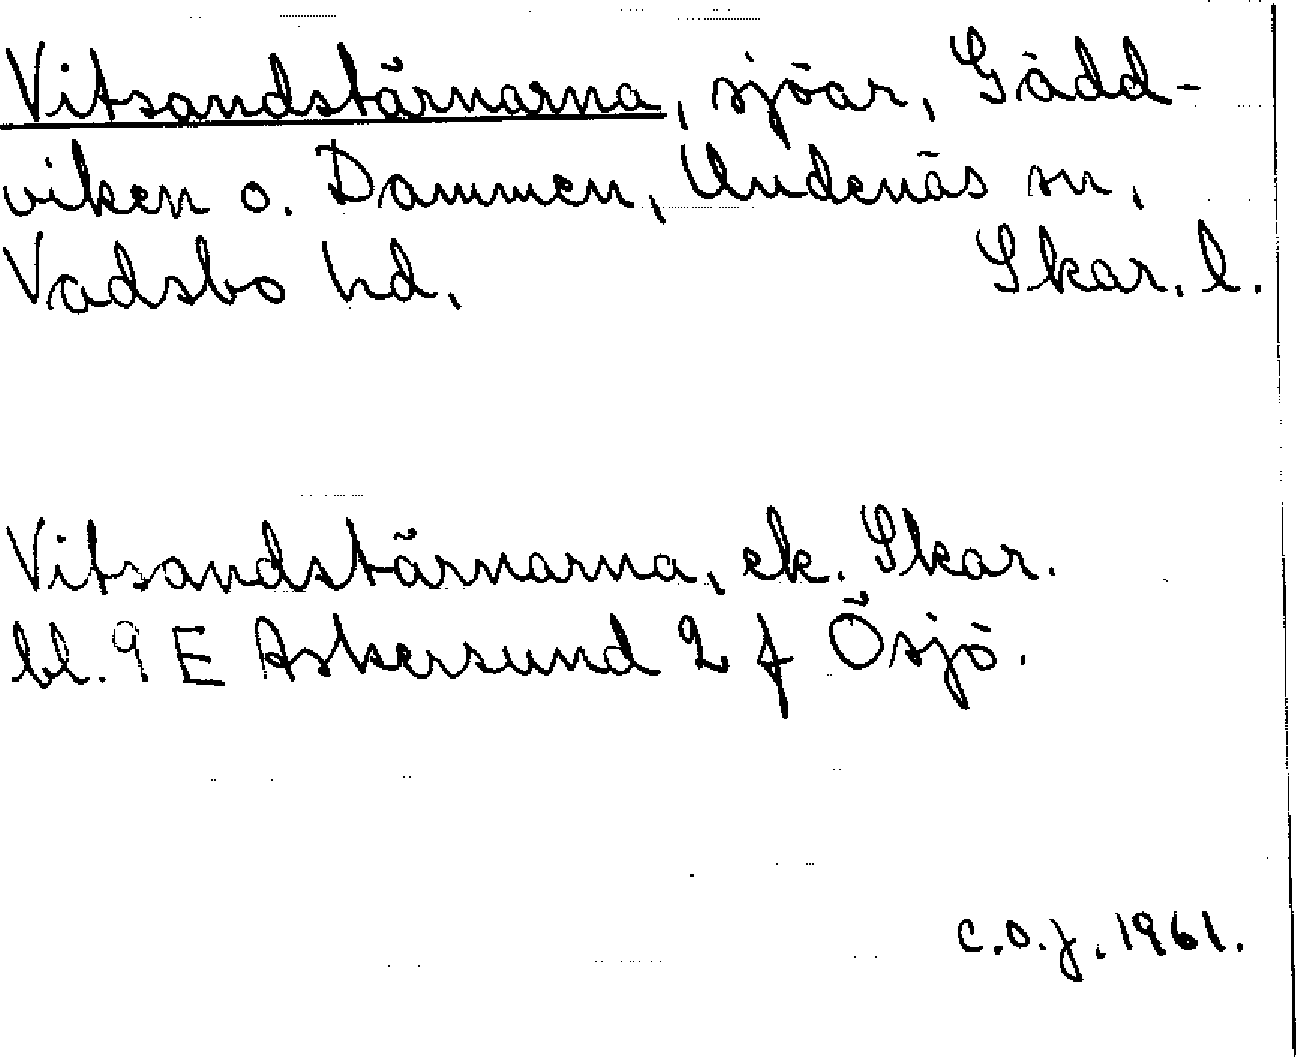 Vitsandstärnarna, sjöar, Gädd-
viken o. Dammen, Undenäs sn,
Vadsbo hd. Skar. l.
Vitsandstärnarna, ek. Skar.
bl. 9 E Askersund 2 f Ösjö.
C.O.J. 1961.